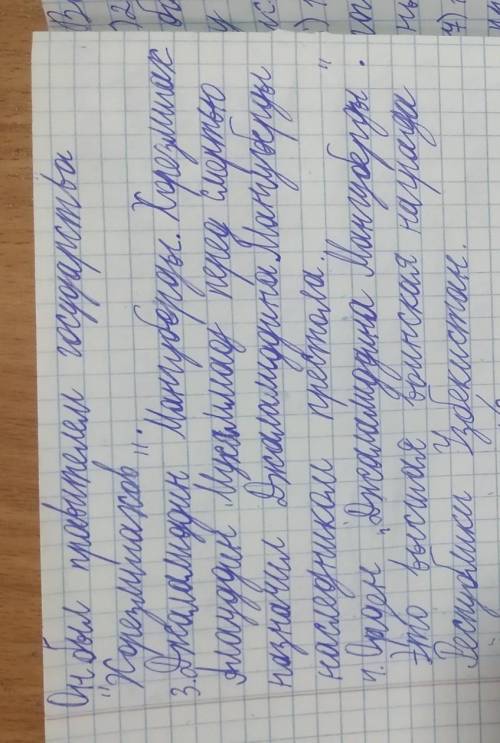 Он был правителем государства
"Хорезмшахов".
3. Джаламиддин Мангуберды. Хорезмшах
Алауддин Мухаммад перед смертью
назначил Джаламиддина Мангуберды
наследником престола.
4. Орден "Джаламиддина Мангуберды".
Это высшая воинская награда
Республики Узбекистан.